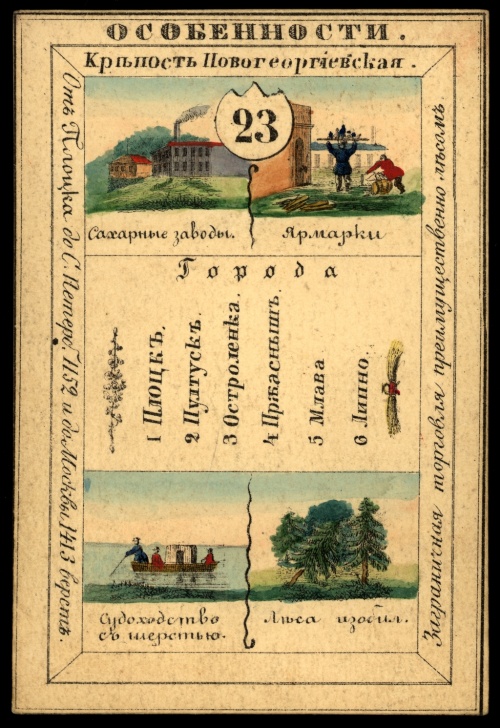 ОСОБЕННОСТИ.
Крѣпость Новогеоргіевская.
23
Сахарные заводы.
Ярмарки
Отъ Плоцка до С. Петерб. 1152 и до Москвы 1413 верстъ.
Заграничная торговля преимущественно лѣсомъ
Города
1 Плоцкъ.
2 Пултускъ.
3 Остроленка.
4 Пржаснышъ.
5 Млава
6 Липно.
Судоходство
съ шерстью.
Лѣса изобил.